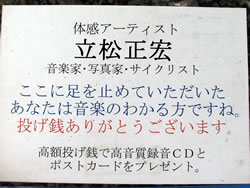 体感アーティスト
立松正宏
音楽家・写真家・サイクリスト
ここに足を止めていただいた
あなたは音楽のわかる方ですね。
投げ銭ありがとうございます。
高額投げ銭で高音質録音CDと
ポストカードをプレゼント。